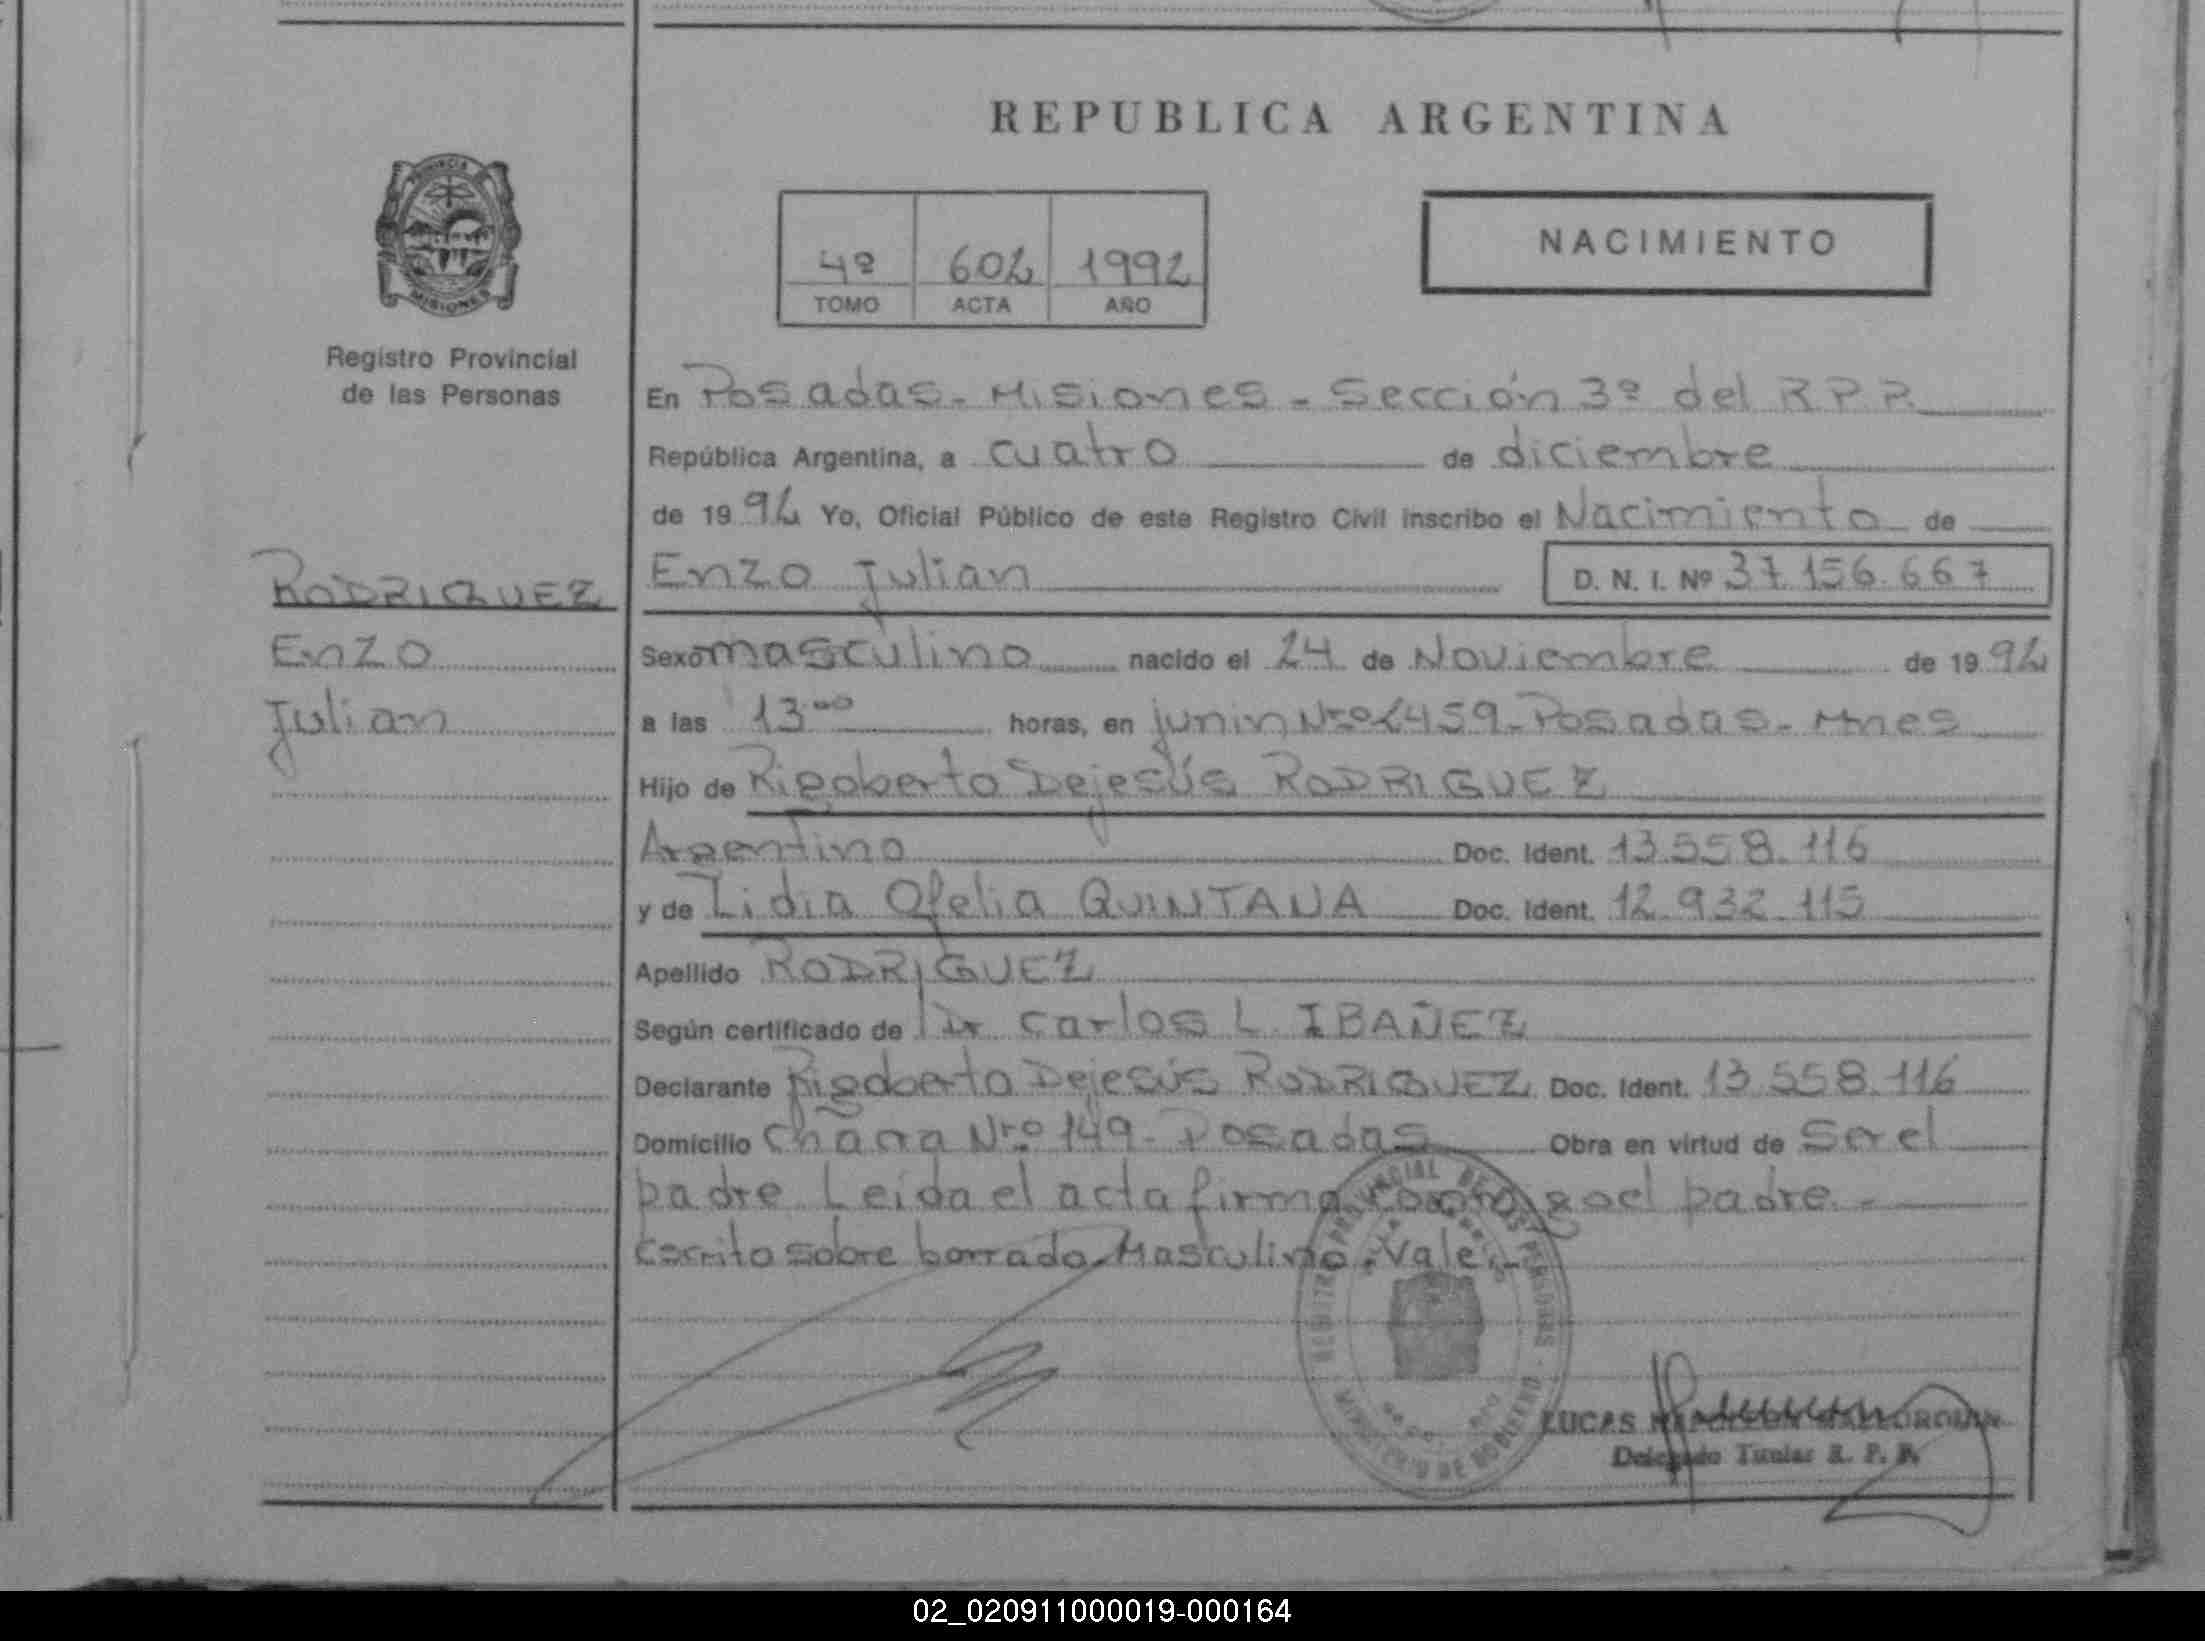 REPUBLICA ARGENTINA
PROVINCIA
MISIONES
Registro Provincial
de las Personas
4º 602 1992
TOMO ACTA AÑO
NACIMIENTO
En Posadas - Misiones - Sección 3º del R.P.P.
República Argentina, a cuatro de diciembre
de 19 92 Yo, Oficial Público de este Registro Civil inscribo el Nacimiento de
Enzo Julian D. N. I. Nº 37.156.667
RODRIGUEZ
Enzo
Julian
Sexo masculino nacido el 24 de Noviembre de 19 92
a las 13 00 horas, en junin Nrº 2459 - Posadas - Mnes
Hijo de Rigoberto Dejesús RODRIGUEZ
Argentino Doc. Ident. 13.558.116
y de Lidia Ofelia QUINTANA Doc. Ident. 12.932.115
Apellido RODRIGUEZ
Según certificado de Dr Carlos L. IBAÑEZ
Declarante Rigoberto Dejesús RODRIGUEZ Doc. Ident. 13.558.116
Domicilio Chacra Nrº 149 - Posadas Obra en virtud de Ser el
padre Leida el acta firma conmigo el padre. -
Escrito sobre borrado. Masculino. Vale. -
REGISTRO PROVINCIAL DE LAS PERSONAS
MINISTERIO DE GOBIERNO
LUCAS
Delegado Titular R. P. P.
02_020911000019-000164